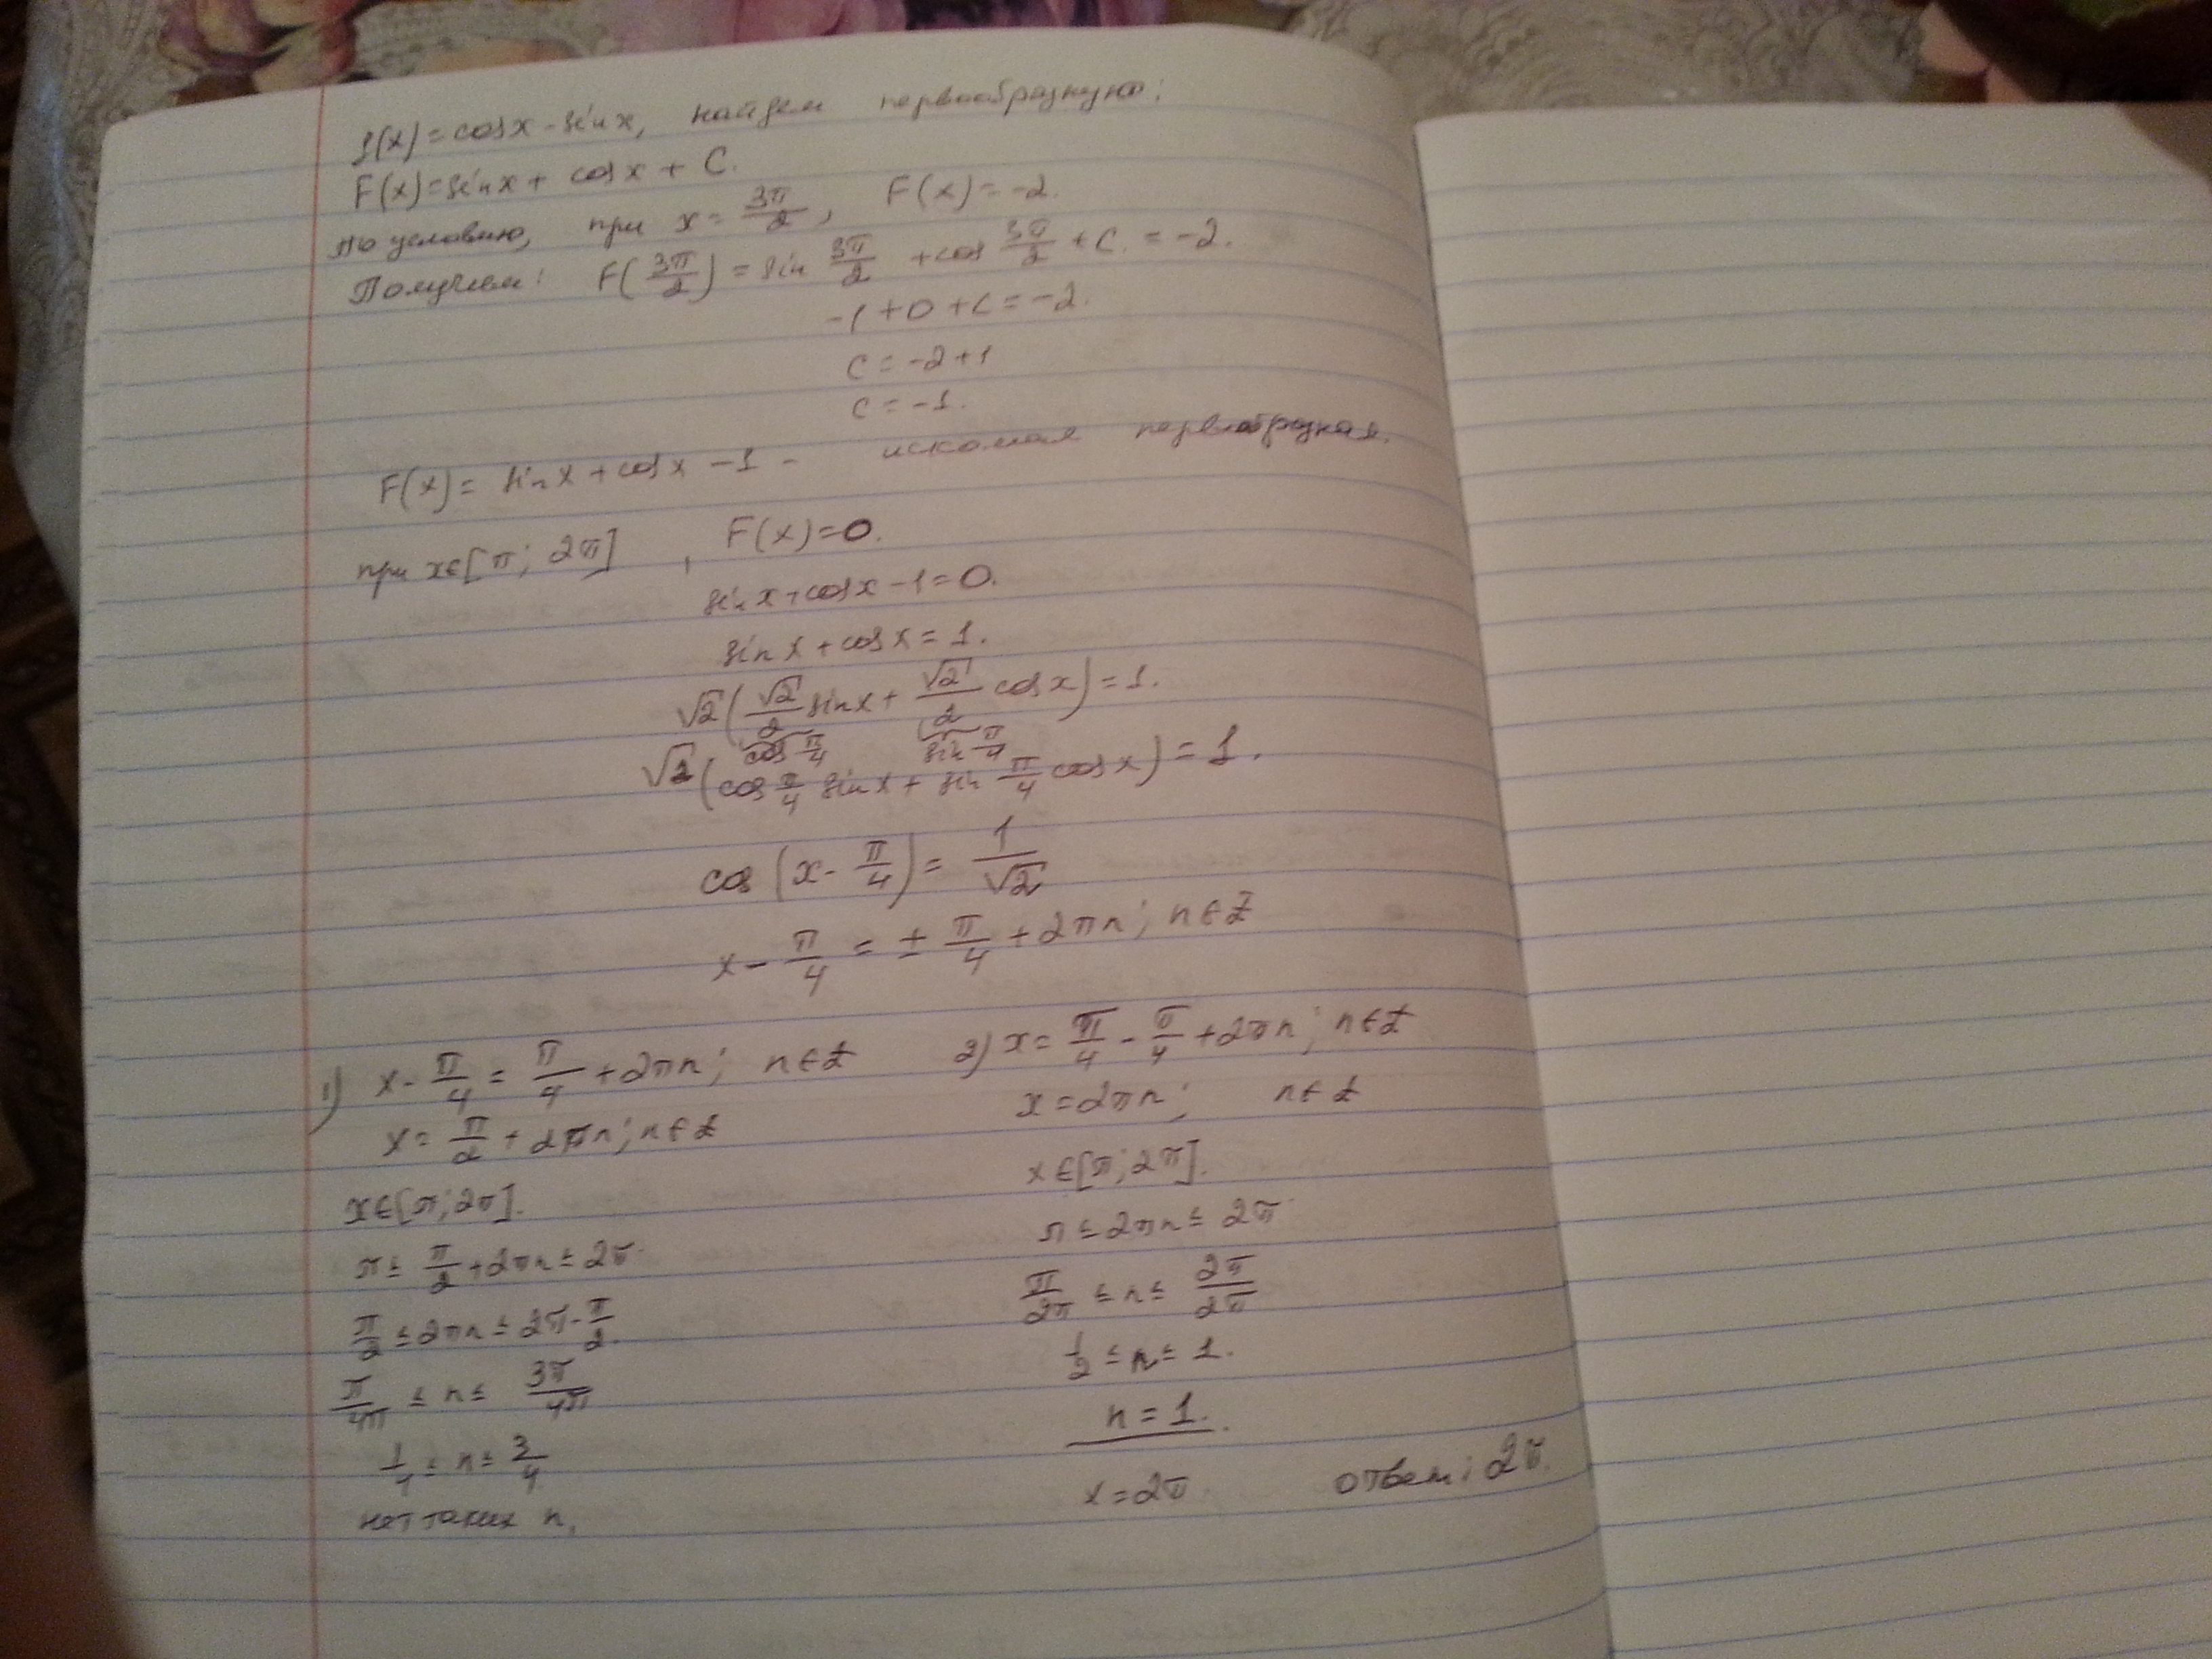 f(x)=cosx-sinx, найдем первообразную:
F(x)=sinx+ cosx + C.
По условию, при x= 3π/2, F(x)=-2.
Получаем: F(3π/2)=sin 3π/2 +cos 3π/2 +C. = -2.
-1+0+C=-2.
C=-2+1
C=-1.
F(x)= sinx+cosx -1 - искомая первообразная.
при x∈[π; 2π] , F(x)=0.
sinx+cosx-1=0.
sinx+cosx=1.
√2(√2/2 sinx+ √2/2 cosx)=1.
cos π/4 sin π/4
√2(cos π/4 sinx+ sin π/4 cosx)=1.
cos(x- π/4)= 1/√2
x- π/4 = ± π/4 +2πn; n∈Z
1) x- π/4 = π/4 +2πn; n∈Z
x= π/2 + 2πn; n∈Z
x∈[π;2π].
π≤ π/2 +2πn≤2π.
π/2 ≤2πn≤2π- π/2.
π/4π ≤n≤ 3π/4π
1/4 ≤n≤ 3/4
нет таких n.
2) x= π/4 - π/4 +2πn; n∈Z
x=2πn; n∈Z
x∈[π;2π].
π≤2πn≤2π.
π/2π ≤n≤ 2π/2π
1/2 ≤n≤1.
n=1.
x=2π.
ответ: 2π.